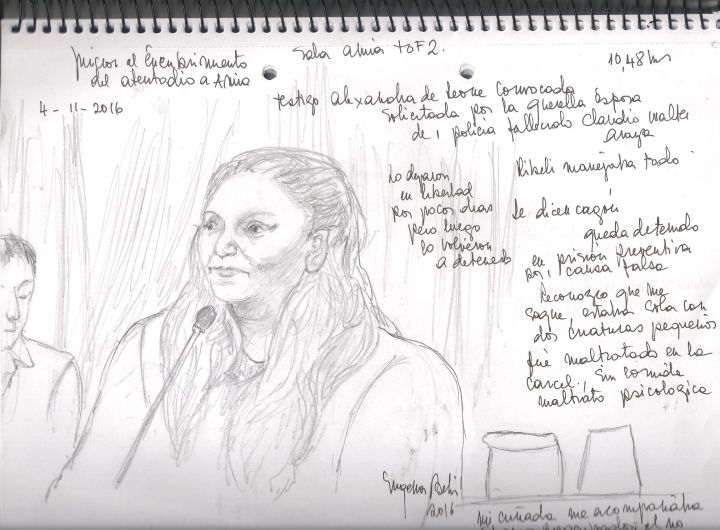 Juicio el Encubrimiento
del atentado a Amia
Sala Amia TOF2.
10,48 hs
4-11-2016
testigo Alexandra de Leone Convocada
Solicitada por la querella Esposa
de 1 policia fallecido Claudio Walter
Araya
Lo dejaron
en libertad
por pocos dias
pero luego
lo volvieron
a detenerlo
Ribeli manejaba todo
Le dicen cagón
queda detenido
en prisión Preventiva
por 1 causa falsa
Reconozco que me
saque, estaba sola con
dos criaturas pequeños
fué maltratado en la
carcel, sin comida
maltrato psicologica
Eugenia
2016
mi cuñada me acompañaba